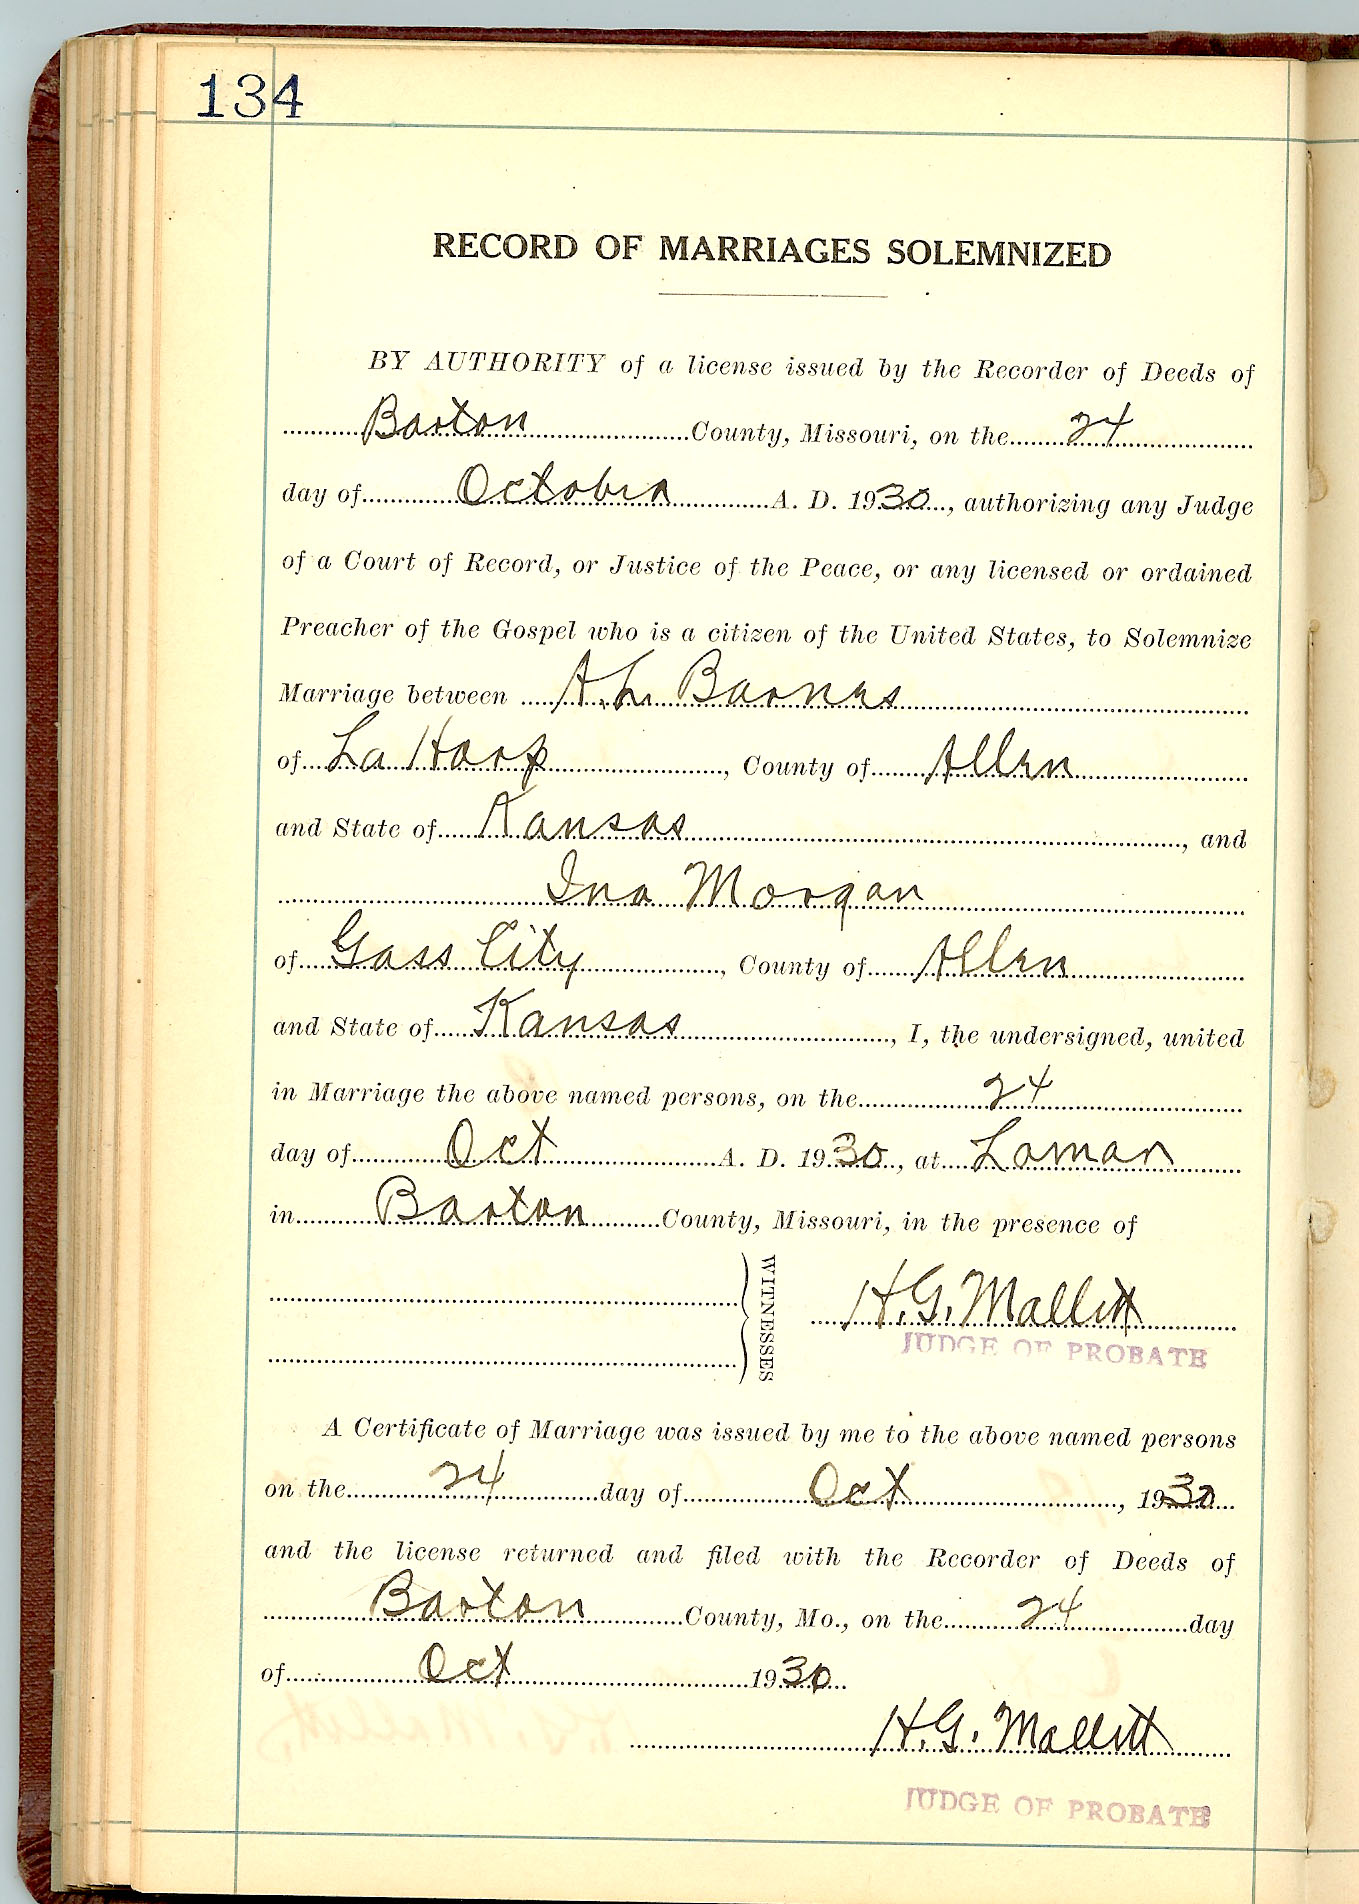 134
RECORD OF MARRIAGES SOLEMNIZED
BY AUTHORITY of a license issued by the Recorder of Deeds of
Barton County, Missouri, on the 24
day of October A. D. 1930, authorizing any Judge
of a Court of Record, or Justice of the Peace, or any licensed or ordained
Preacher of the Gospel who is a citizen of the United States, to Solemnize
Marriage between A. L. Barnes
of La Harp, County of Allen
and State of Kansas, and
Ina Morgan
of Gass City, County of Allen
and State of Kansas, I, the undersigned, united
in Marriage the above named persons, on the 24
day of Oct A. D. 1930, at Lamar
in Barton County, Missouri, in the presence of
WITNESSES
H. G. Mallett
JUDGE OF PROBATE
A Certificate of Marriage was issued by me to the above named persons
on the 24 day of Oct, 1930
and the license returned and filed with the Recorder of Deeds of
Barton County, Mo., on the 24 day
of Oct 1930
H. G. Mallett
JUDGE OF PROBATE